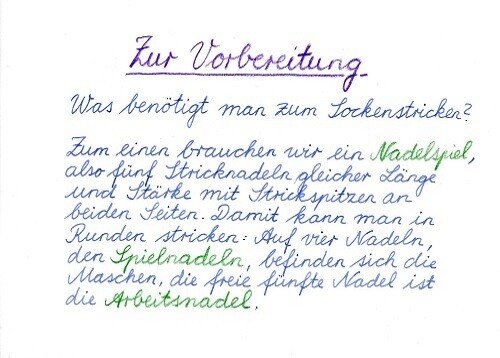 Zur Vorbereitung
Was benötigt man zum Sockenstricken?
Zum einen brauchen wir ein Nadelspiel,
also fünf Stricknadeln gleicher Länge
und Stärke mit Strickspitzen an
beiden Seiten. Damit kann man in
Runden stricken: Auf vier Nadeln,
den Spielnadeln, befinden sich die
Maschen, die freie fünfte Nadel ist
die Arbeitsnadel.